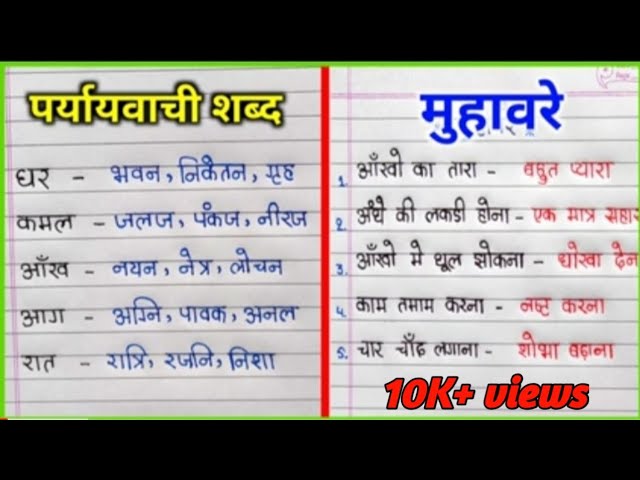 पर्यायवाची शब्द
घर - भवन, निकेतन, गृह
कमल - जलज, पंकज, नीरज
आँख - नयन, नेत्र, लोचन
आग - अग्नि, पावक, अनल
रात - रात्रि, रजनि, निशा
मुहावरे
1. आँखो का तारा - बहुत प्यारा
2. अंधे की लकडी होना - एक मात्र सहा
3. आँखो मे धूल झोकना - धोखा देन
4. काम तमाम करना - नष्ट करना
5. चार चाँद लगाना - शोभा बढ़ाना
10K+ views